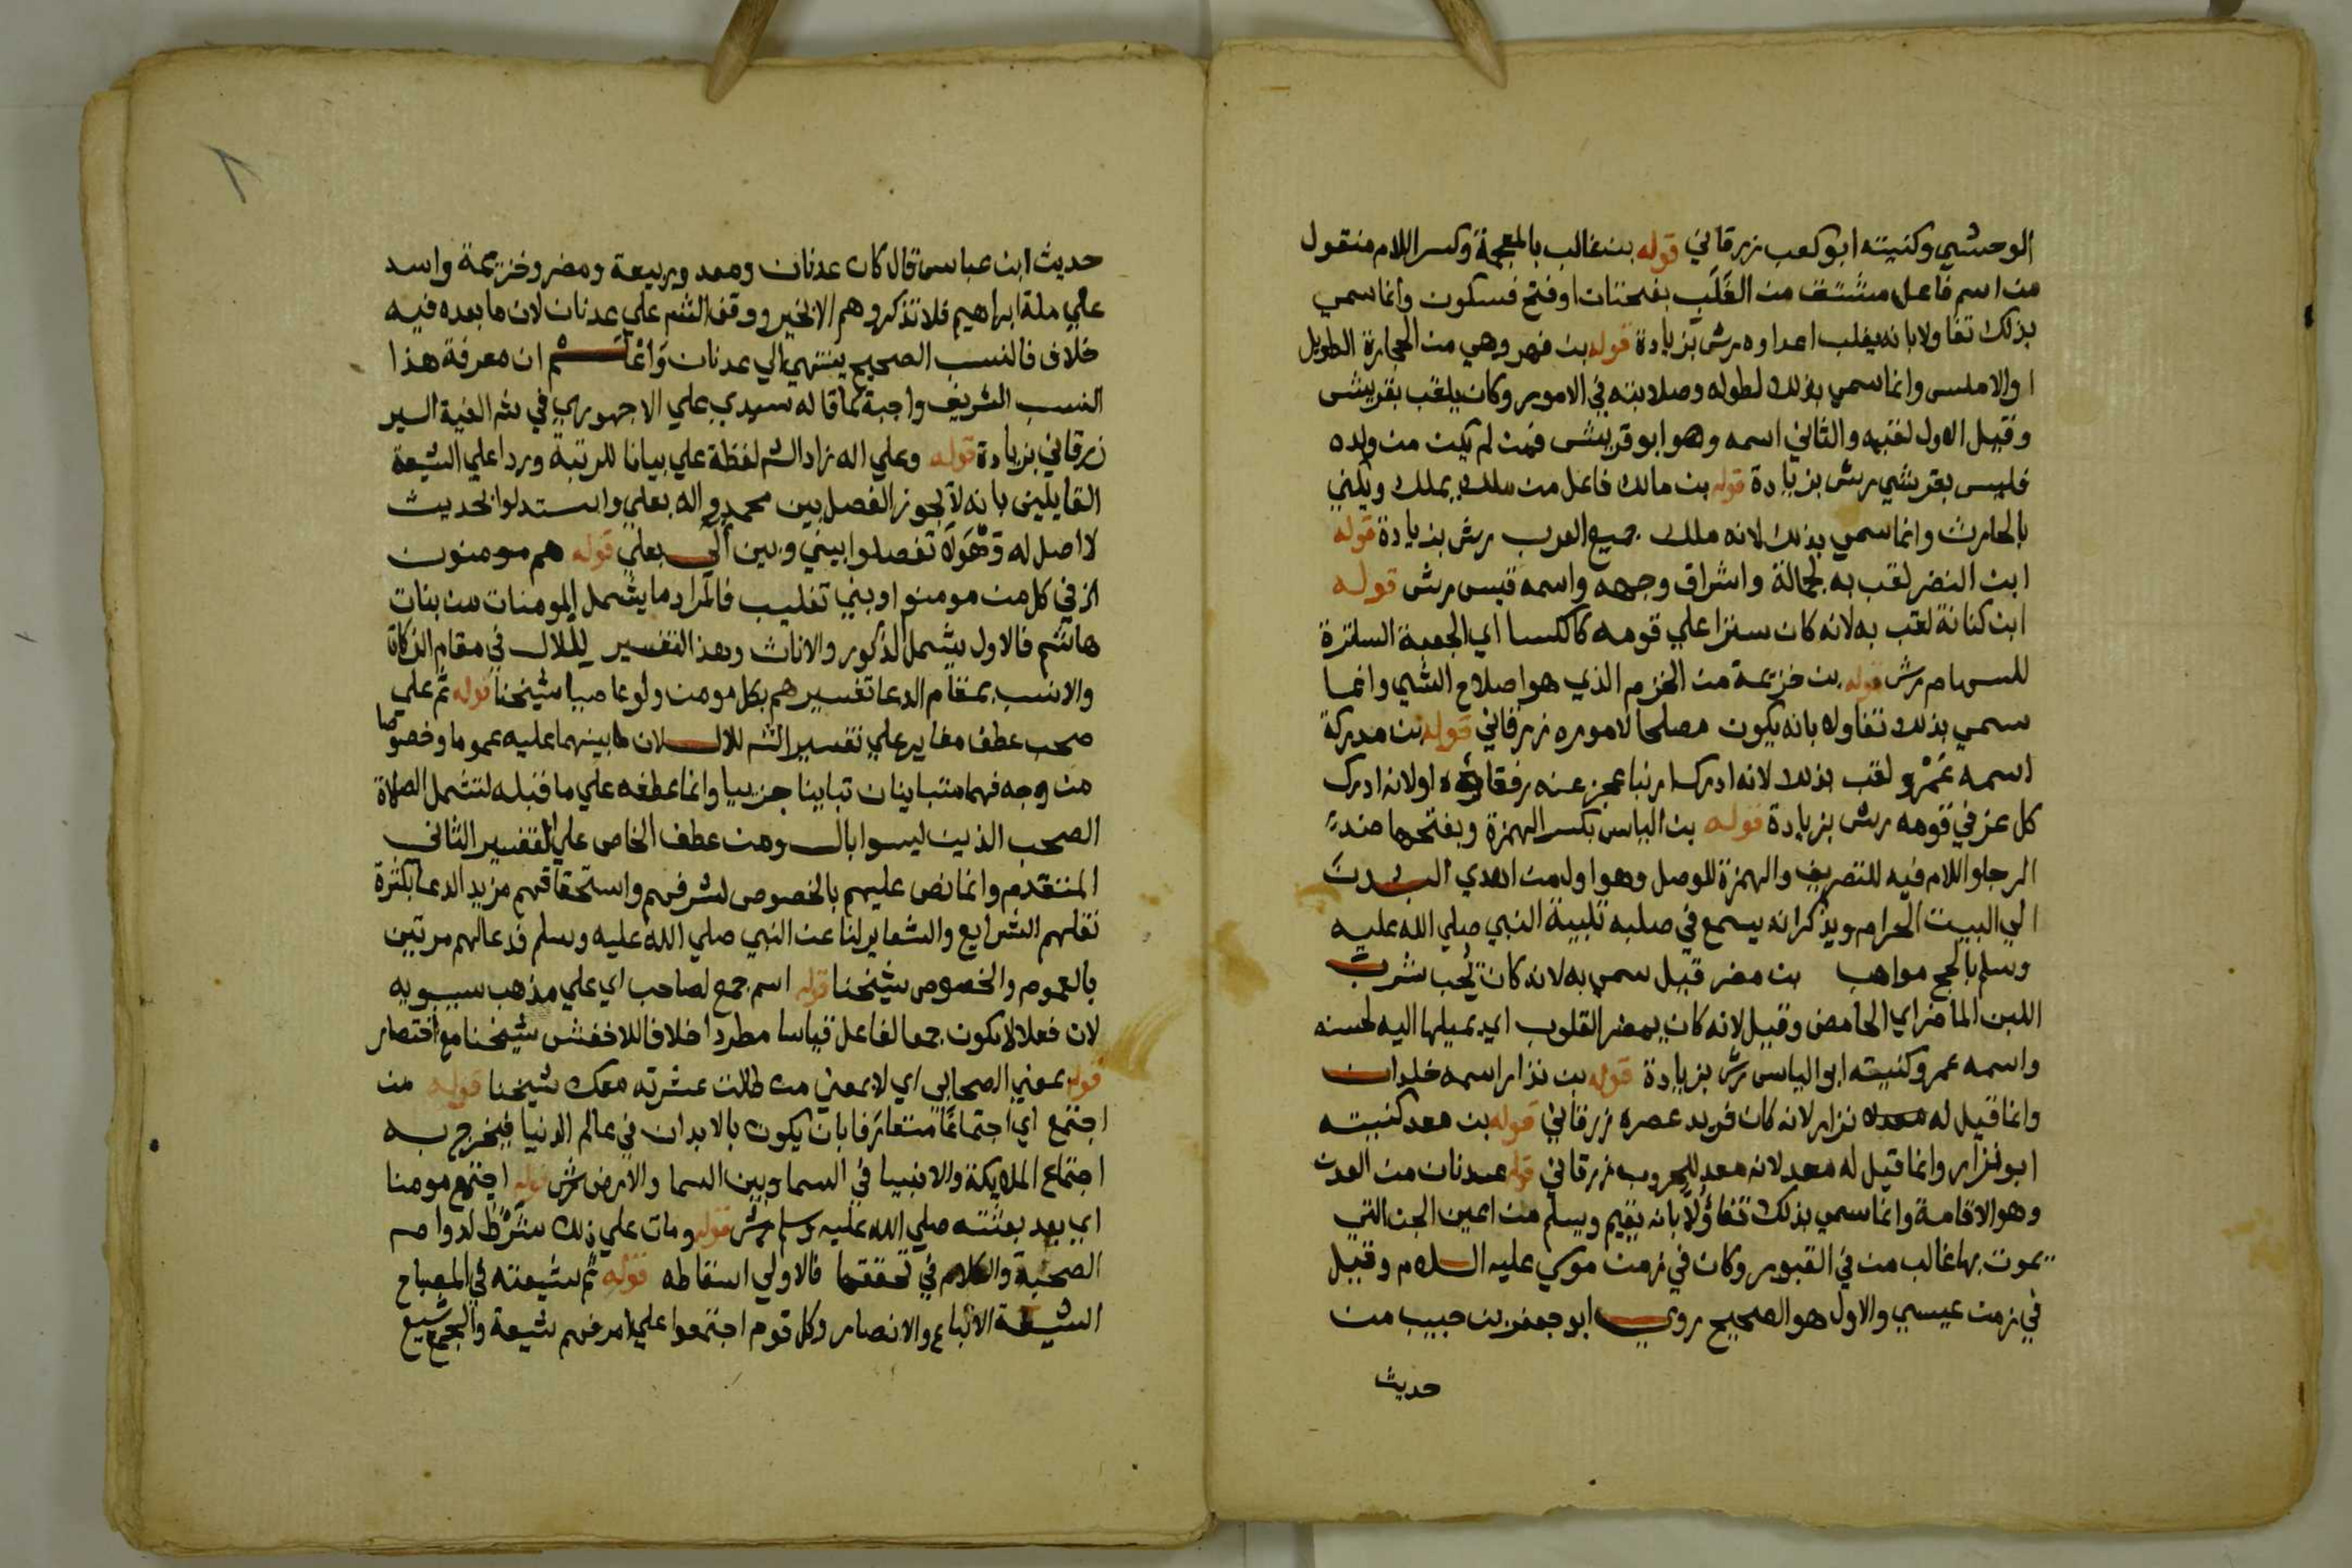 الوحشي وكنيته ابو كعب زرقاني قوله بن غالب بالمعجمة وكسر اللام منقول
من اسم فاعل مشتق من الغَلَب بفتحتان او فتح فسكون وانما سمي
بذلك تفاولا بانه يغلب اعداوه برش بزيادة قوله بن فهر وهي من الحجارة الطويل
او الاملس وانما سمي بذلك لطوله وصلابته في الامور وكان يلقب بقريش
وقيل الاول لقبه والثاني اسمه وهو ابو قريش فمن لم يكن من ولده
فليس بقرشي برش بزيادة قوله بن مالك فاعل من ملك يملك ويكني
بالحارث وانما سمي بذلك لانه ملك جميع العرب برش بزيادة قوله
ابن النضر لقب به لجمالة واشراق وجهه واسمه قيس برش قوله
ابن كنانة لقب به لانه كان سترا علي قومه كالكسا اي الجعبة الساترة
للسهام برش قوله بن خزيمة من الخزم الذي هو اصلاح الشي وانما
سمي بذلك تفاوله بانه يكون مصلحا لاموره زرقاني قوله بن مدركة
اسمه عَمْرو لقب بذلك لانه ادرك ارنبا عجز عنه رفقاؤه او لانه ادرك
كل عز في قومه برش بزيادة قوله بن الياس بكسر الهمزة وبفتحها ضد
الرجا واللام فيه للتعريف والهمزة للوصل وهو اول من اهدي البدن
الي البيت الحرام ويذكر انه يسمع في صلبه تلبية النبي صلي الله عليه
وسلم بالحج مواهب بن مضر قيل سمي به لانه كان يُحب شرب
اللبن الماضر اي الحامض وقيل لانه كان يمضر القلوب اي يميلها اليه لحسنه
واسمه عمرو كنيته ابو الياس برش بزيادة قوله بن نزار اسمه خلدان
وانما قيل له نزار لانه كان فريد عصره زرقاني قوله بن معد كنيته
ابو نزار وانما قيل له معد لانه معد للحروب زرقاني قوله عدنان من العدن
وهو الاقامة وانما سمي بذلك تفاؤلا بانه يقيم ويسلم من اعين الجن التي
يموت بها غالب من في القبور وكان في زمن موسي عليه السلام وقيل
في زمن عيسي والاول هو الصحيح روي ابو جعفر بن حبيب من
حديث
حديث ابن عباس قال كان عدنان ومعد وربيعة ومضر وخزيمة واسد
علي ملة ابراهيم فلا تذكروهم الا بخير ووقف الشم علي عدنان لان ما بعده فيه
خلاف فالنسب الصحيح ينتهي الي عدنان ان معرفة هذا
النسب الشريف واجبة كما قاله سيدي علي الاجهوري في شه الفية السير
زرقاني بزيادة قوله وعلي اله زاد الشم لفظة علي بيانا للرتبة وردا علي الشيعة
القايلين بانه لا يجوز الفصل بين محمد واله بعلي واستدلوا بحديث
لا اصل له وهو لا تفصلوا بيني وبين الي بعلي قوله هم مومنون
الخ في كل من مومنوا وبني تغليب فالمراد ما يشمل المومنات من بنات
هاشم فالاول يشمل الذكور والاناث وهذا التفسير للال في مقام الزكاة
والانسب بمقام الدعا تفسيرهم بكل مومن ولو عاصيا شيخنا قوله ثم علي
صحب عطف مغاير علي تفسير الشه للال لان ما بينهما عليه عموما وخصوصا
من وجه فهما متباينان تباينا جزييا وانما عطفه علي ما قبله لتشمل الصلاة
الصحب الذين ليسوا بال ومن عطف الخاص علي التفسير الثاني
المتقدم وانما نص عليهم بالخصوص لشرفهم واستحقاقهم مزيد الدعا بكثرة
نقلهم الشرايع والشعاير لنا عن النبي صلي الله عليه وسلم فدعا لهم مرتين
بالعموم والخصوص شيخنا قوله اسم جمع لصاحب اي علي مذهب سيبويه
لان فعلا لا يكون جمعا لفاعل قياسا مطردا خلافا للاخفش شيخنا مع اختصار
قوله بمعني الصحابي اي لا بمعني من طالت عشرته معك شيخنا قوله من
اجتمع اي اجتماعًا متعارفا بان يكون بالابدان في عالم الدنيا فيخرج به
اجتماع الملايكة والانبيا في السما وبين السما والارض برش قوله اجتمع مومنا
اي بعد بعثته صلي الله عليه وسلم برش قوله ومات علي ذلك شَرْط لدوام
الصحبة والكلام في تحققها فالاولي اسقاطه قوله ثم شيعته في المصباح
الشيعة الاتباع والانصار وكل قوم اجتمعوا علي امر فهم شيعة والجمع شيع